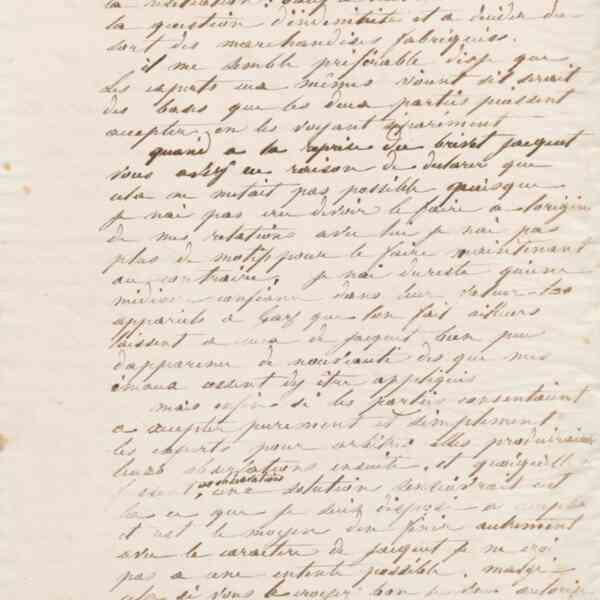 la question d'indemnité et a décider du
sort des marchandises fabriquées.
il me semble préférable disje que
les experts eux mêmes visent s'il serait
des bases que les deux parties puissent
accepter en les voyant séparément
quand a la reprise du brevet jacquet
vous avez eu raison de declarer que
cela ne metait pas possible puisque
je nai pas cru devoir le faire a lorigine
de mes relations avec lui je nai pas
plus de motifs pour le faire maintenant
au contraire. je nai dureste quune
médiocre confiance dans leur valeur les
appareils a gaz que lon fait ailleurs
laissent a ceux de jacquet bien peu
dapparence de nouveauté dès que mes
émaux cessent dy être appliqués
mais enfin si les parties consentaient
a accepter purement et simplement
les experts pour arbitres elles produiraient
leurs observations ensuite. et quoiquil
observations une solution
a ce que je suis disposé a accepter
et est le moyen den finir autrement
avec le caractère de jacquet je ne croi
pas a une entente possible. malgré
cela si vous le croyez bon je vous autorise